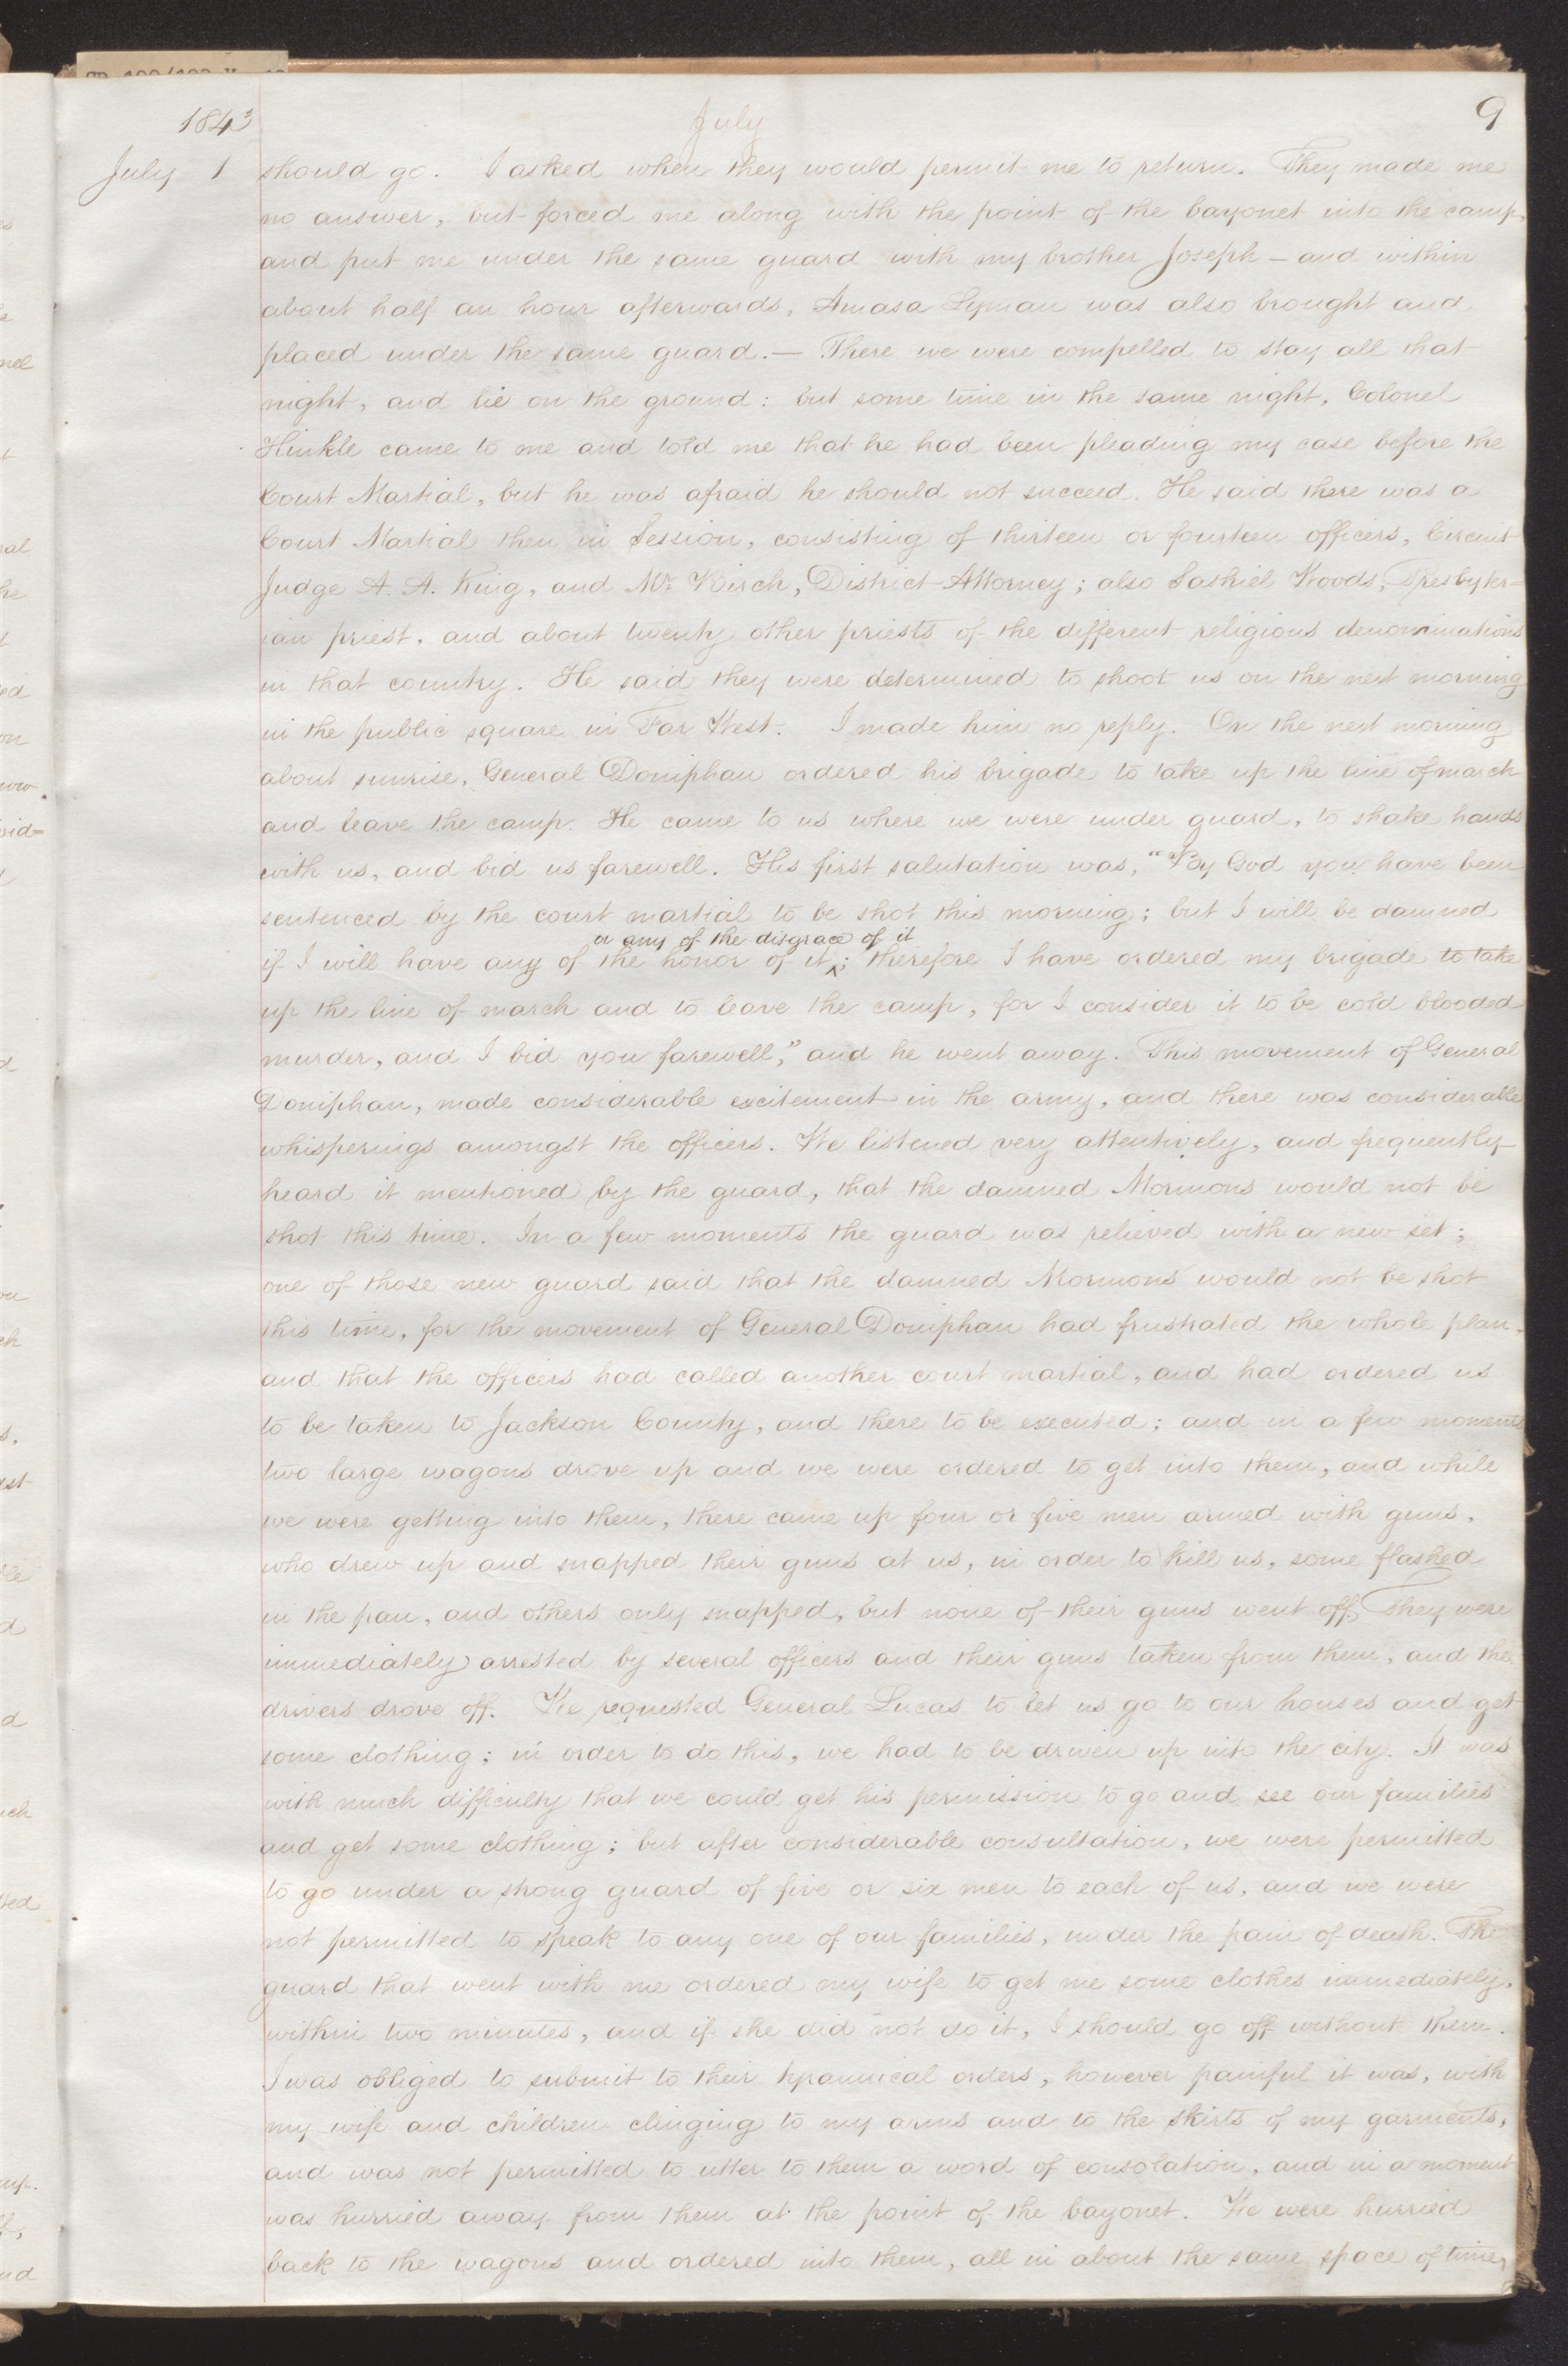 1843
July
9
July 1 should go. I asked when they would permit me to return. They made me
no answer, but forced me along with the point of the bayonet into the camp,
and put me under the same guard with my brother Joseph — and within
about half an hour afterwards, Amasa Lyman was also brought and
placed under the same guard. — There we were compelled to stay all that
night, and lie on the ground: but some time in the same night, Colonel
Hinkle came to me and told me that he had been pleading my case before the
Court Martial, but he was afraid he should not succeed. He said there was a
Court Martial then in Session, consisting of thirteen or fourteen officers, Circuit
Judge A. A. King, and Mr. Birch, District Attorney; also Sashiel Woods, Presbyter-
ian priest, and about twenty other priests of the different religious denominations
in that country. He said they were determined to shoot us on the next morning
in the public square in Far West. I made him no reply. On the next morning
about sunrise, General Doniphan ordered his brigade to take up the line of march
and leave the camp. He came to us where we were under guard, to shake hands
with us, and bid us farewell. His first salutation was, "By God you have been
sentenced by the court martial to be shot this morning; but I will be damned
or any of the disgrace of it
if I will have any of the honor of it^; therefore I have ordered my brigade to take
up the line of march and to leave the camp, for I consider it to be cold blooded
murder, and I bid you farewell," and he went away. This movement of General
Doniphan, made considerable excitement in the army, and there was considerable
whisperings amongst the officers. We listened very attentively, and frequently
heard it mentioned by the guard, that the damned Mormons would not be
shot this time. In a few moments the guard was relieved with a new set;
one of those new guard said that the damned Mormons would not be shot
this time, for the movement of General Doniphan had frustrated the whole plan,
and that the officers had called another court martial, and had ordered us
to be taken to Jackson County, and there to be executed; and in a few moments
two large wagons drove up and we were ordered to get into them, and while
we were getting into them, there came up four or five men armed with guns,
who drew up and snapped their guns at us, in order to kill us, some flashed
in the pan, and others only snapped, but none of their guns went off, They were
immediately arrested by several officers and their guns taken from them, and the
drivers drove off. We requested General Lucas to let us go to our houses and get
some clothing; in order to do this, we had to be driven up into the city. It was
with much difficulty that we could get his permission to go and see our families
and get some clothing; but after considerable consultation, we were permitted
to go under a strong guard of five or six men to each of us, and we were
not permitted to speak to any one of our families, under the pain of death. The
guard that went with me ordered my wife to get me some clothes immediately,
within two minutes, and if she did not do it, I should go off without them.
I was obliged to submit to their tyrannical orders, however painful it was, with
my wife and children clinging to my arms and to the skirts of my garments,
and was not permitted to utter to them a word of consolation, and in a moment
was hurried away from them at the point of the bayonet. We were hurried
back to the wagons and ordered into them, all in about the same space of time,